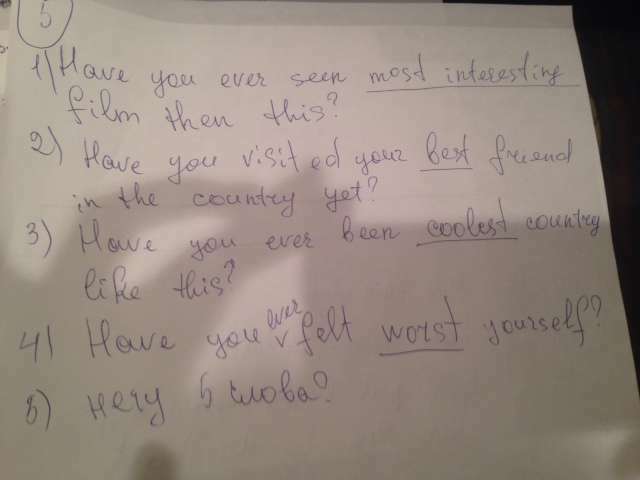 5
1) Have you ever seen most interesting
film then this?
2) Have you visited your best friend
in the country yet?
3) Have you ever been coolest country
like this?
4) Have you ever felt worst yourself?
5) нету 5 слова?